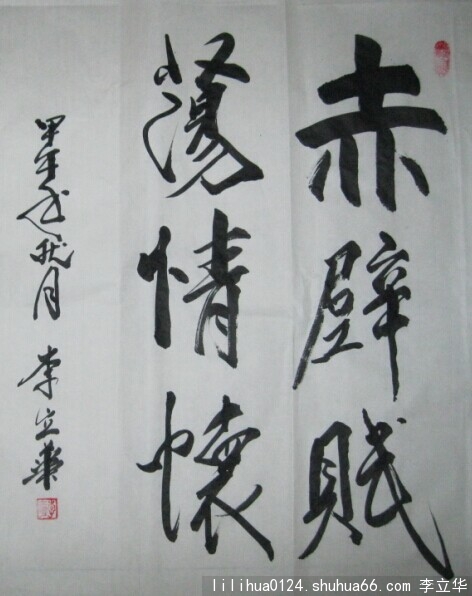 赤壁賦
蕩情懷
甲午年秋月 李立華
lilihua0124.shuhua66.com 李立华